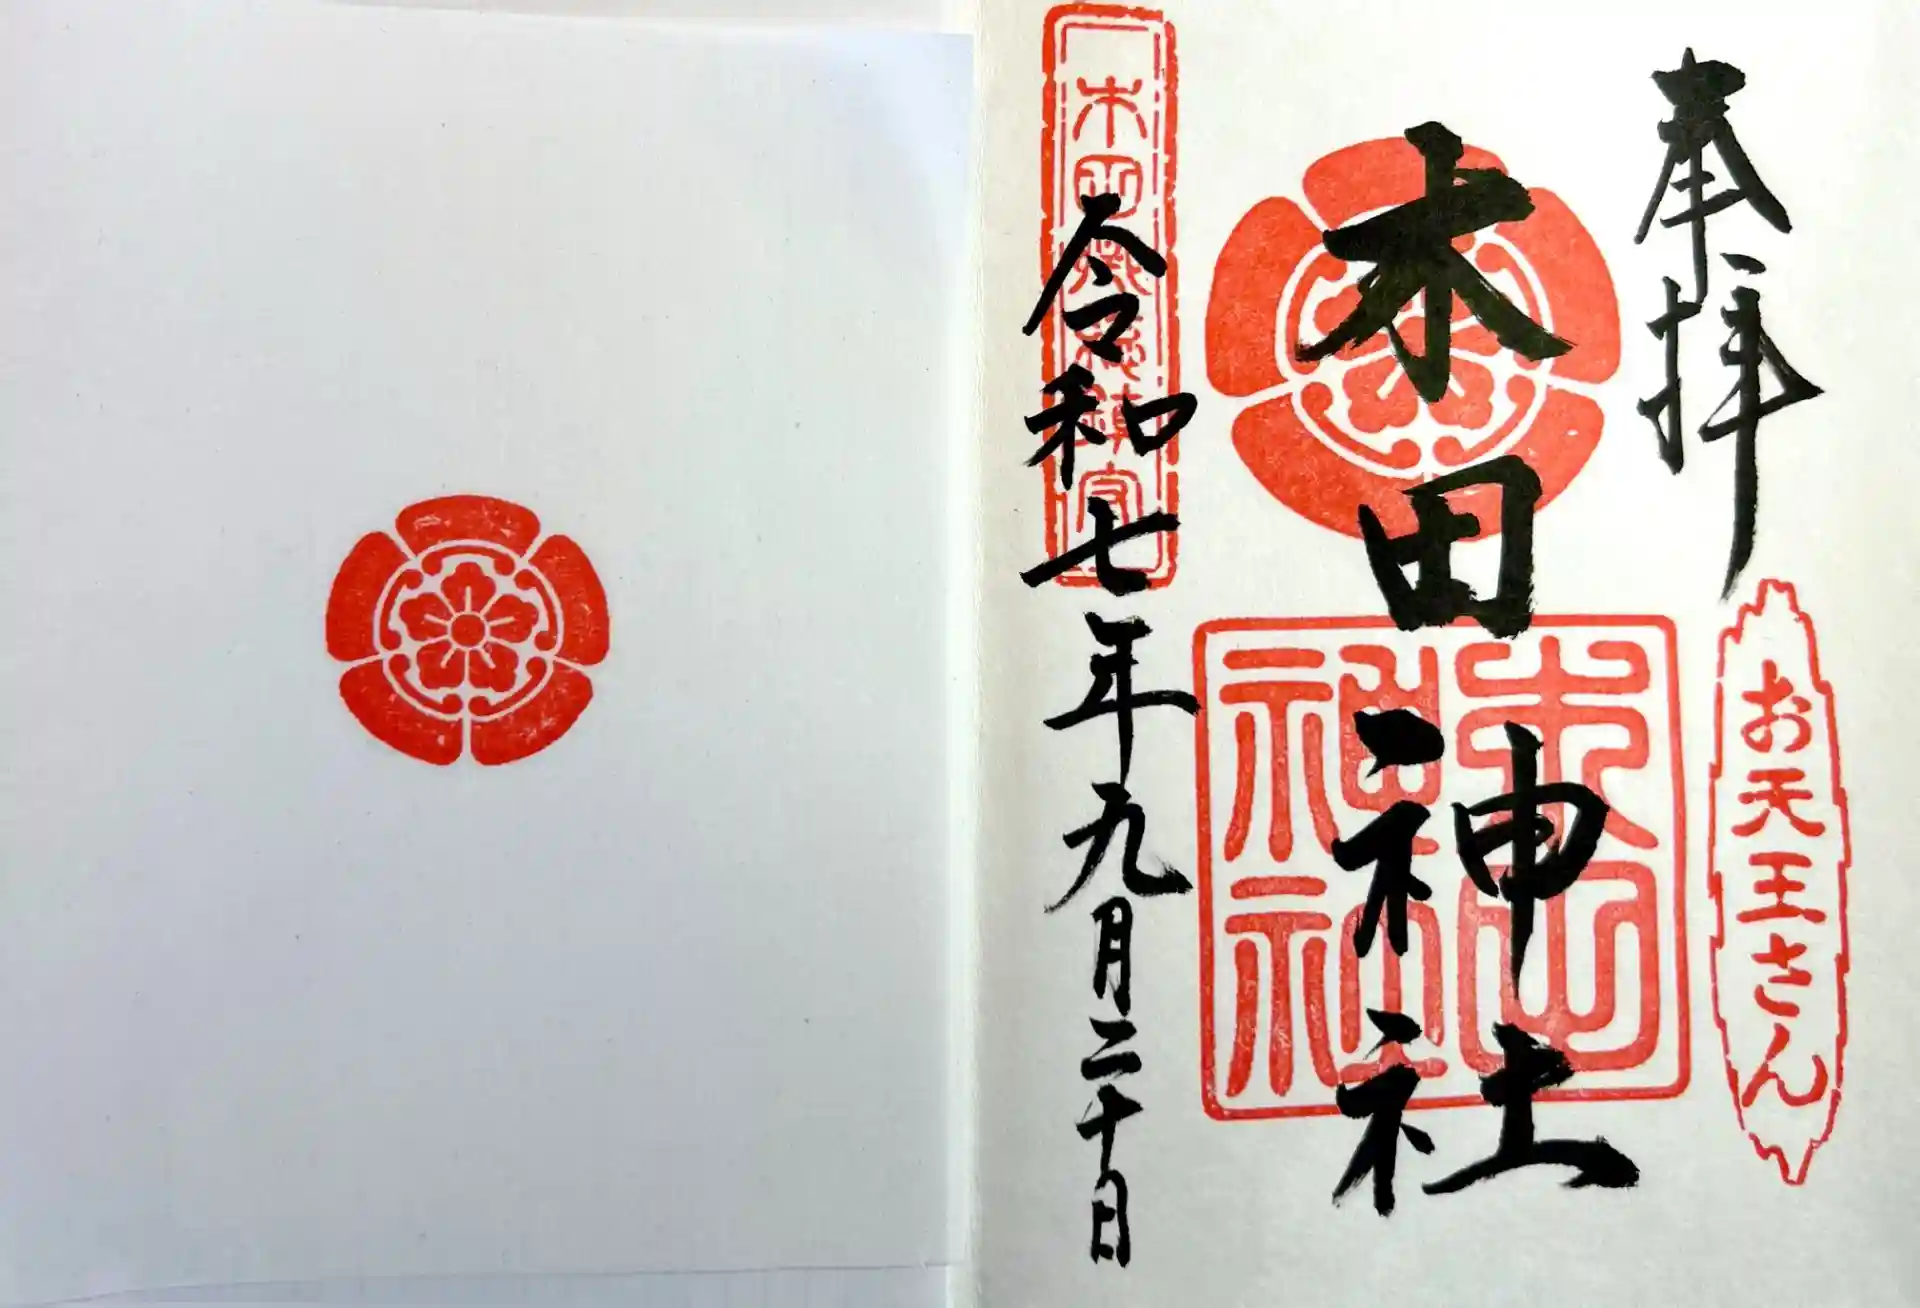 奉拝
お天王さん
木田神社
木田神社
令和七年九月二十日